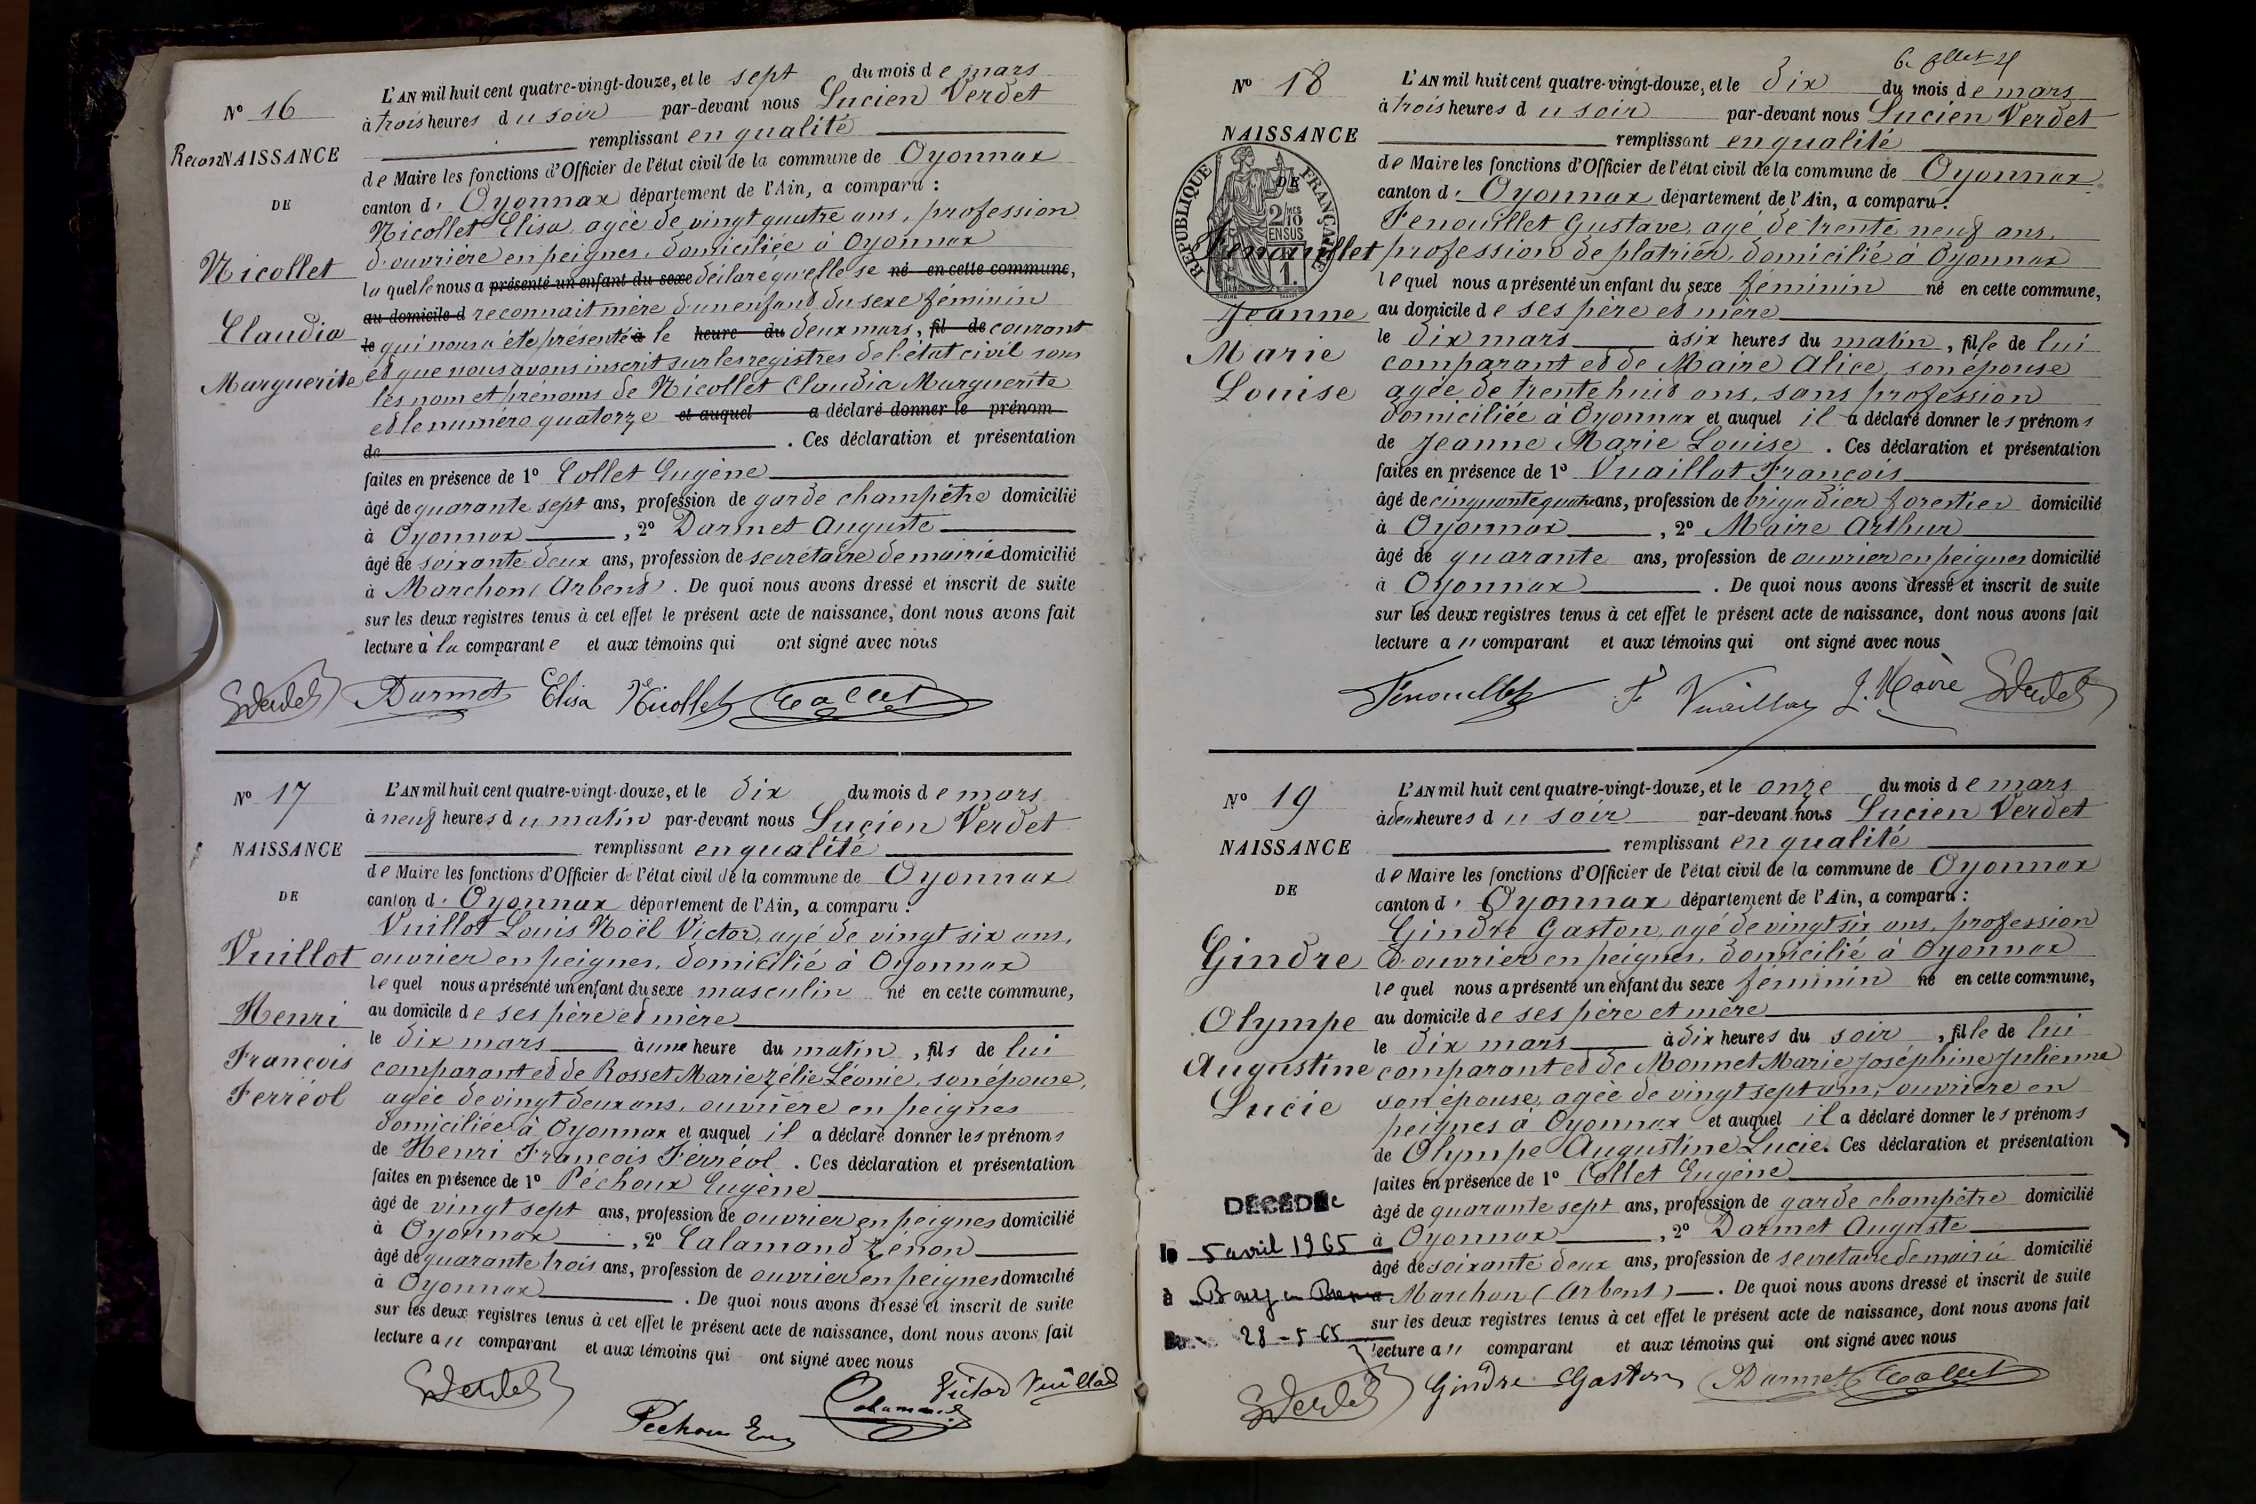 N° 16
ReconNAISSANCE
DE
Nicollet
Claudia
Marguerite
L'AN mil huit cent quatre-vingt-douze, et le sept du mois de mars
à trois heures du soir par-devant nous Lucien Verdet
remplissant en qualité
de Maire les fonctions d'Officier de l'état civil de la commune de Oyonnax
canton d' Oyonnax département de l'Ain, a comparu :
Nicollet Elisa agée de vingt quatre ans, profession
d'ouvrière en peignes, domiciliée à Oyonnax
laquelle nous a présenté un enfant du sexe déclare qu'elle se né en cette commune,
au domicile d reconnait mère d'un enfant du sexe féminin
le qui nous a été présenté à le heure du deux mars, fil de courant
et que nous avons inscrit sur les registres de l'état civil sous
les nom et prénoms de Nicollet Claudia Marguerite
et le numéro quatorze et auquel a déclaré donner le prénom
de . Ces déclaration et présentation
faites en présence de 1° Collet Eugène
âgé de quarante sept ans, profession de garde champêtre domicilié
à Oyonnax , 2° Darmet Auguste
âgé de soixante deux ans, profession de secrétaire de mairie domicilié
à Marchon (Arbent) . De quoi nous avons dressé et inscrit de suite
sur les deux registres tenus à cet effet le présent acte de naissance, dont nous avons fait
lecture à la comparante et aux témoins qui ont signé avec nous
Verdet Darmet Elisa Nicollet Collet
N° 17
NAISSANCE
DE
Vuillot
Henri
François
Ferréol
L'AN mil huit cent quatre-vingt-douze, et le dix du mois de mars
à neuf heures du matin par-devant nous Lucien Verdet
remplissant en qualité
de Maire les fonctions d'Officier de l'état civil de la commune de Oyonnax
canton d' Oyonnax département de l'Ain, a comparu :
Vuillot Louis Noël Victor, agé de vingt six ans,
ouvrier en peignes, domicilié à Oyonnax
lequel nous a présenté un enfant du sexe masculin né en cette commune,
au domicile de ses père et mère
le dix mars à une heure du matin , fils de lui
comparant et de Rosset Marie Zélie Léonie, son épouse,
agée de vingt deux ans, ouvrière en peignes
domiciliée à Oyonnax et auquel il a déclaré donner les prénoms
de Henri François Ferréol . Ces déclaration et présentation
faites en présence de 1° Péchoux Eugène
âgé de vingt sept ans, profession de ouvrier en peignes domicilié
à Oyonnax , 2° Calamand Zénon
âgé de quarante trois ans, profession de ouvrier en peignes domicilié
à Oyonnax . De quoi nous avons dressé et inscrit de suite
sur les deux registres tenus à cet effet le présent acte de naissance, dont nous avons fait
lecture au comparant et aux témoins qui ont signé avec nous
Verdet Péchoux Eug Calamand Victor Vuillot
N° 18
NAISSANCE
DE
REPUBLIQUE FRANÇAISE
2/10 EN SUS
Fenouillet
Jeanne
Marie
Louise
L'AN mil huit cent quatre-vingt-douze, et le dix du mois de mars
à trois heures du soir par-devant nous Lucien Verdet
remplissant en qualité
de Maire les fonctions d'Officier de l'état civil de la commune de Oyonnax
canton d' Oyonnax département de l'Ain, a comparu :
Fenouillet Gustave, agé de trente neuf ans,
profession de platrier, domicilié à Oyonnax
lequel nous a présenté un enfant du sexe féminin né en cette commune,
au domicile de ses père et mère
le dix mars à six heures du matin , fille de lui
comparant et de Maire Alice, son épouse
agée de trente huit ans, sans profession
domiciliée à Oyonnax et auquel il a déclaré donner les prénoms
de Jeanne Marie Louise . Ces déclaration et présentation
faites en présence de 1° Vuaillat François
âgé de cinquante quatre ans, profession de brigadier forestier domicilié
à Oyonnax , 2° Maire Arthur
âgé de quarante ans, profession de ouvrier en peignes domicilié
à Oyonnax . De quoi nous avons dressé et inscrit de suite
sur les deux registres tenus à cet effet le présent acte de naissance, dont nous avons fait
lecture au comparant et aux témoins qui ont signé avec nous
Fenouillet F Vuaillat J. Maire Verdet
N° 19
NAISSANCE
DE
Gindre
Olympe
Augustine
Lucie
DÉCÉDÉe
le 5 avril 1965
à Bourg en Bresse
28-5-65
L'AN mil huit cent quatre-vingt-douze, et le onze du mois de mars
à deux heures du soir par-devant nous Lucien Verdet
remplissant en qualité
de Maire les fonctions d'Officier de l'état civil de la commune de Oyonnax
canton d' Oyonnax département de l'Ain, a comparu :
Gindre Gaston, agé de vingt six ans, profession
d'ouvrier en peignes, domicilié à Oyonnax
lequel nous a présenté un enfant du sexe féminin né en cette commune,
au domicile de ses père et mère
le dix mars à dix heures du soir , fille de lui
comparant et de Monnet Marie Joséphine Julienne
son épouse, agée de vingt sept ans, ouvrière en
peignes à Oyonnax et auquel il a déclaré donner les prénoms
de Olympe Augustine Lucie. Ces déclaration et présentation
faites en présence de 1° Collet Eugène
âgé de quarante sept ans, profession de garde champêtre domicilié
à Oyonnax , 2° Darmet Auguste
âgé de soixante deux ans, profession de secrétaire de mairie domicilié
Marchon (Arbent) . De quoi nous avons dressé et inscrit de suite
sur les deux registres tenus à cet effet le présent acte de naissance, dont nous avons fait
lecture au comparant et aux témoins qui ont signé avec nous
Verdet Gindre Gaston Darmet Collet